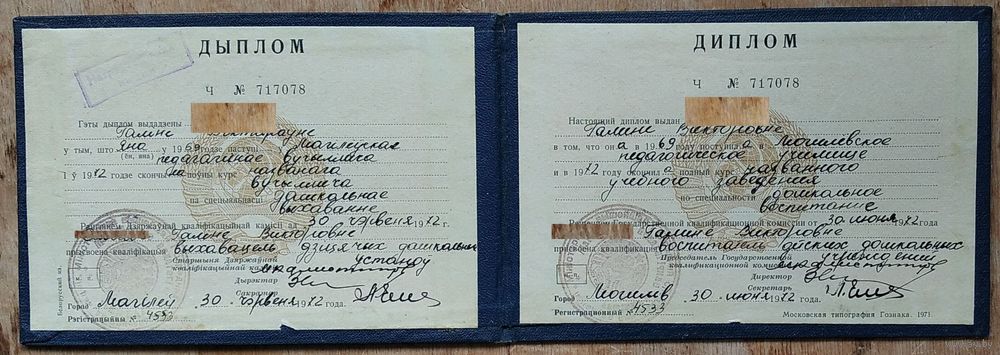 ДЫПЛОМ
Ч № 717078
Гэты дыплом выдадзены
Галіне Віктараўне
у тым, што яна у 1969 годзе паступіла Магілеўскае
(ён, яна)
педагагічнае вучылішча
і ў 1972 годзе скончыла поўны курс названага
вучылішча
па спецыяльнасці дашкольнае
выхаванне
Рашэннем Дзяржаўнай кваліфікацыйнай камісіі ад 30 чэрвеня 1972 г.
Галіне Віктараўне
прысвоена кваліфікацыя выхавацель дзіцячых дашкольных
устаноў
Старшыня Дзяржаўнай
кваліфікацыйнай камісіі
Дырэктар
Сакратар
Город Магілеў 30 чэрвеня 1972 года.
Рэгістрацыйны № 4533
Беларускай мз.
ДИПЛОМ
Ч № 717078
Настоящий диплом выдан
Галине Викторовне
в том, что она в 1969 году поступила в Могилевское
педагогическое училище
и в 1972 году окончила полный курс названного
учебного заведения
по специальности дошкольное
воспитание
Решением Государственной квалификационной комиссии от 30 июня 1972 года
Галине Викторовне
присвоена квалификация воспитатель детских дошкольных
учреждений
Председатель Государственной
квалификационной комиссии
Директор
Секретарь
Город Могилев 30 июня 1972 года.
Регистрационный № 4533
Московская типография Гознака. 1971.